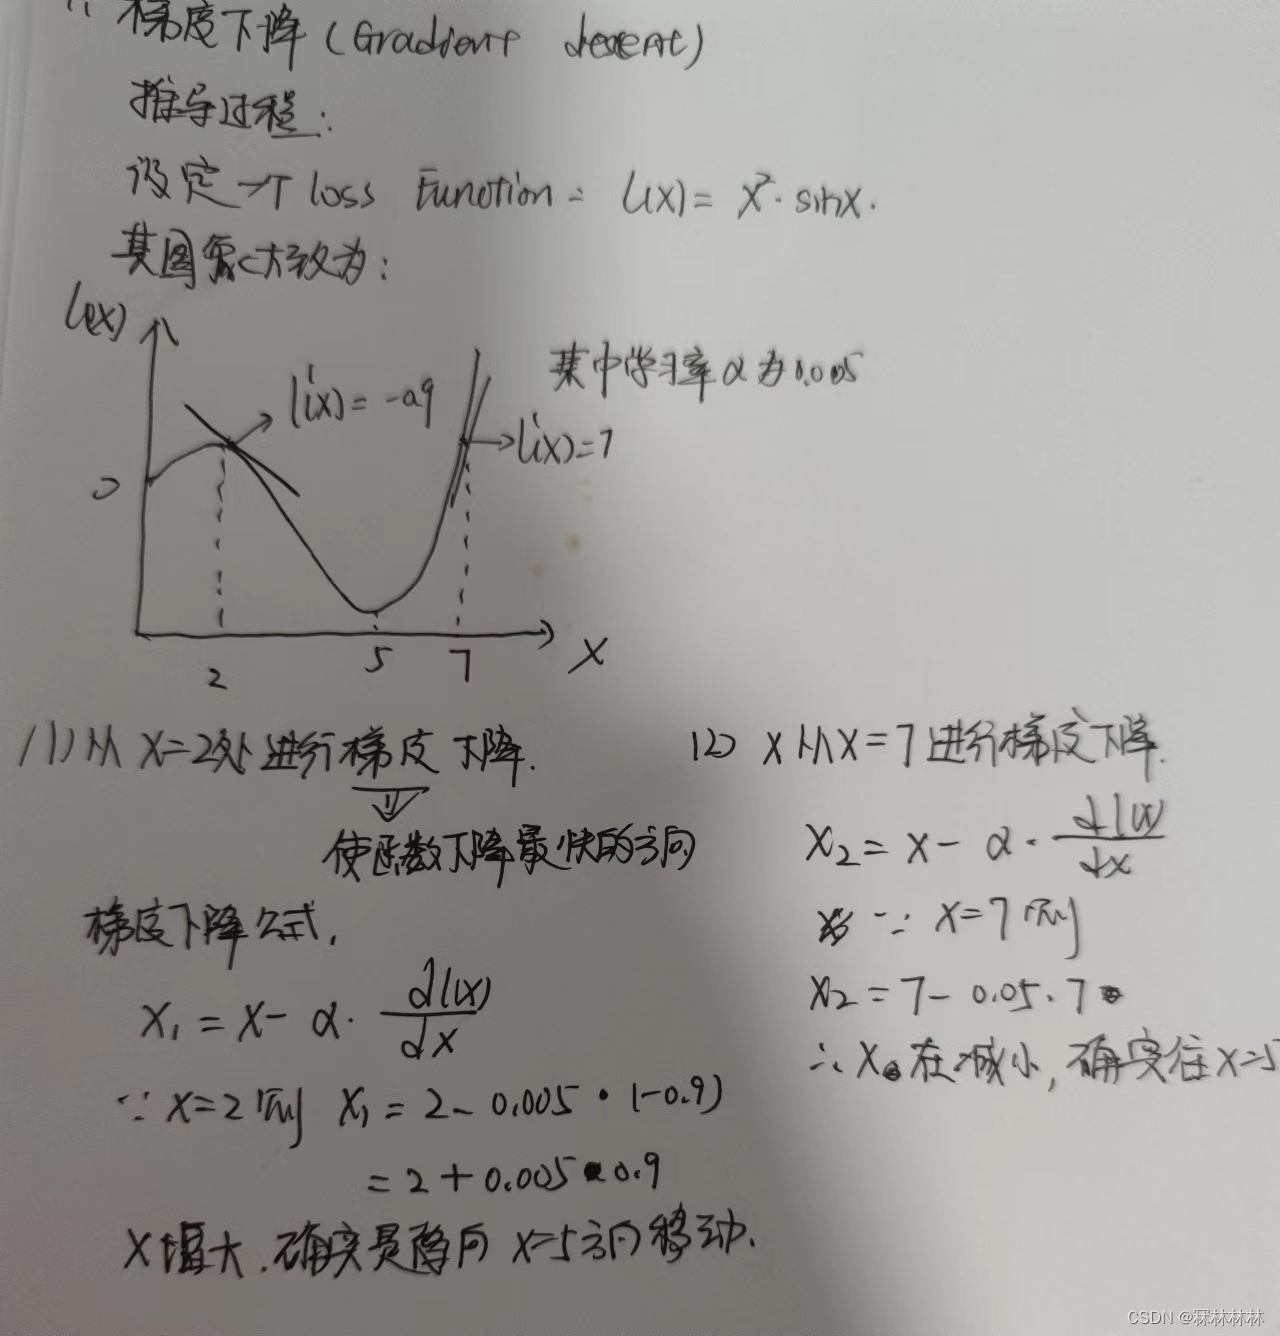 梯度下降(Gradient descent)
推导过程:
设定一个loss Function: l(x)= x²·sinx.
其图象大致为:
l(x)
l'(x)=-0.9
其中学习率α为0.005
l'(x)=7
0
2
5
7
X
(1)从 X=2处进行梯度下降.
使函数下降最快的方向
梯度下降公式,
X₁ = X- α· dl(x)/dx
∵ X=2 则 X₁ = 2- 0.005·(-0.9)
= 2+0.005·0.9
X增大,确实是降向 X=5方向移动.
(2) X从X=7进行梯度下降.
X₂ = X- α· dl(x)/dx
∵ X=7则
X₂=7- 0.05·7
∴X在减小,确实往X=5
CSDN @冧林林林